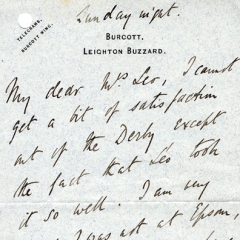 Sunday night.
TELEGRAMS,
BURCOTT WING.
BURCOTT,
LEIGHTON BUZZARD.
My dear Mrs Leo, I cannot
get a bit of satisfaction
out of the Derby except
the fact that Leo took
it so well. I am very
I was not at Epsom,